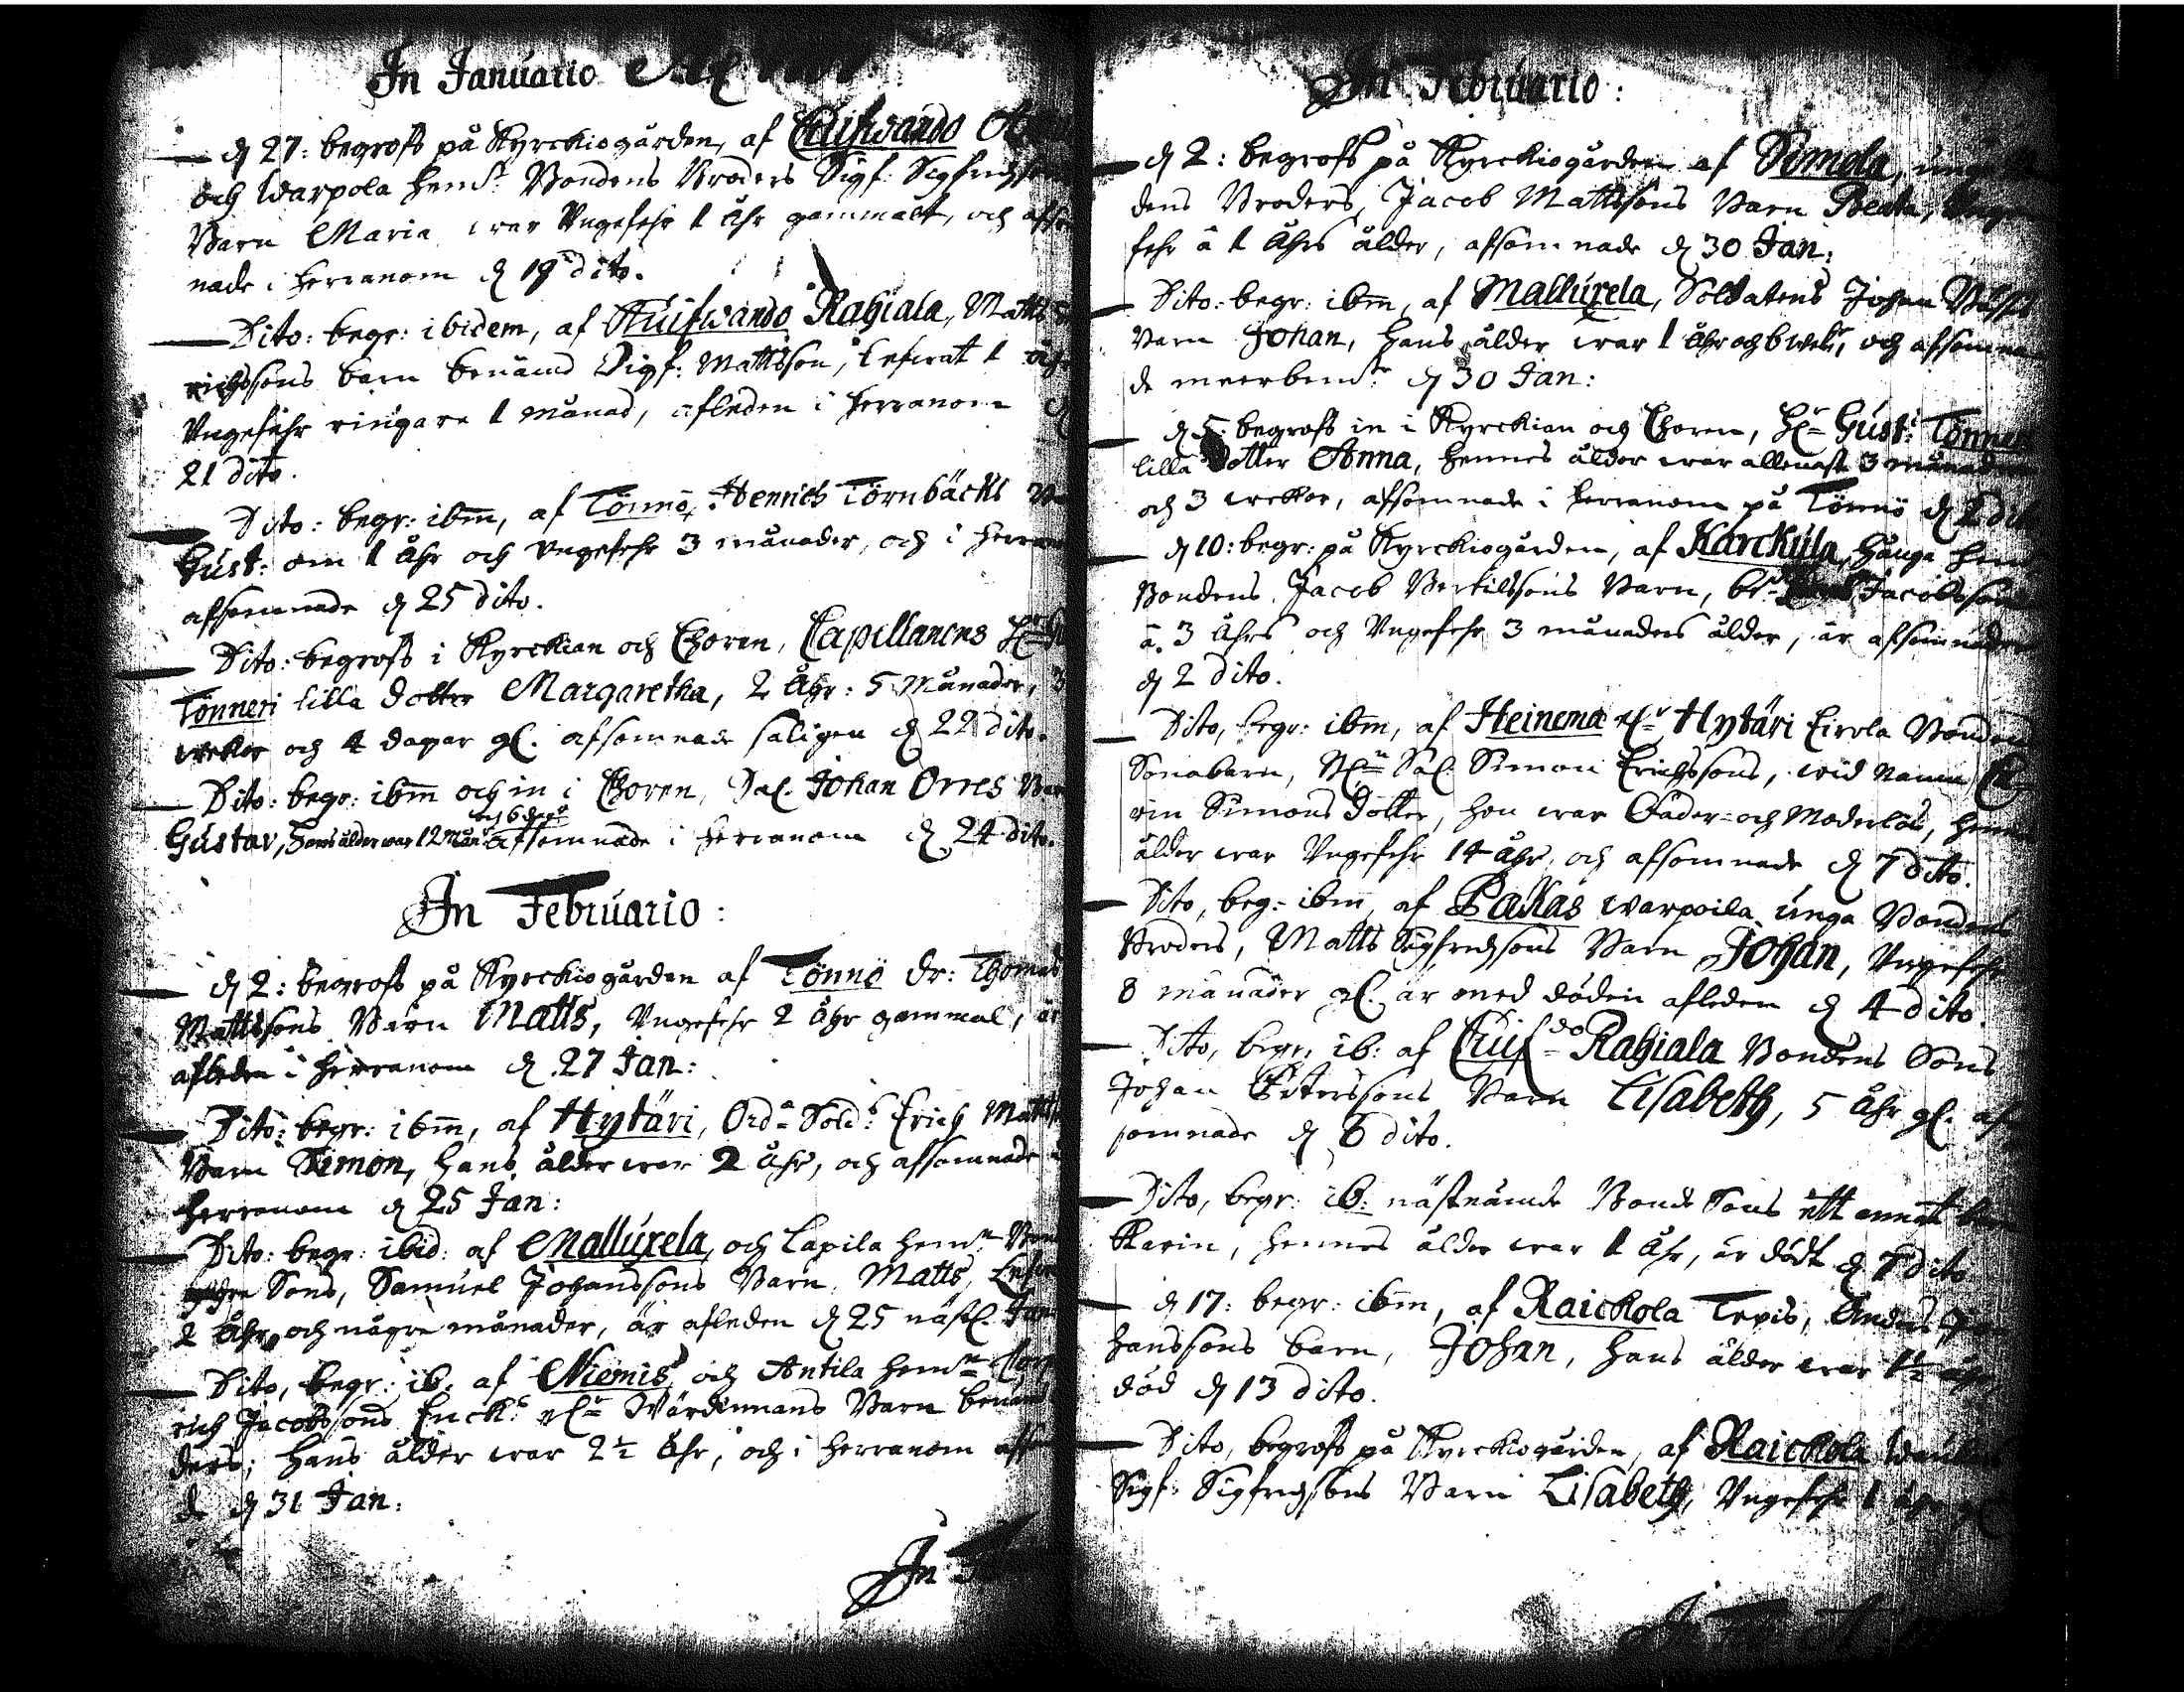 In Januario
d 27: begrofs på Kyrckiogården, af Cuifwando
och Warpola hem: Bondens Broders Sigf: Sigfredssons
Barn Maria war Ungefehr 1 Åhr gammalt, och afsom
nade i herranom d 19 dito.
Dito: begr: ibidem, af Kuifwando Rahiala, Matts
richssons barn benämd Sigf: Mattsson, Lefwat 1 åhr
Ungefehr ringare 1 månad, afleden i herranom d
21 dito.
Dito: begr: ibm, af Tönnö, Henrich Törnbäcks
Gust: om 1 Åhr och ungefehr 3 månader, och i herra
afsomnade d 25 dito.
Dito: begrofs i Kyrckian och Choren, Capellanens
Tönneri lilla Dotter Margaretha, 2 Åhr: 5 Månader, 3
wekor och 4 dagar gl. afsomnade saligen d 22 dito.
Dito: begr: ibm och in i Choren, Sal. Johan Orres
och 6 dagr
Gustav, hans ålder war 12 Mån: afsomnade i herranom d. 24 dito.
In Februario:
d 2: begrofs på Kyrckiogården af Tönnö dr: Thomas
Mattssons Barn Matts, Ungefehr 2 Åhr gammal, är
afleden i herranom d. 27 Jan:
Dito: begr: ibm, af Hytäri, Ord: Sold: Erich Matts
Barn Simon, hans ålder war 2 Åhr, och afsomnade i
herranom d 25 Jan:
Dito: begr: ibid: af Mallurela, och Lapila hem:
Sons, Samuel Johanssons Barn, Matts,
2 Åhr och någre månader, är afleden d 25 nästl. Jan
Dito, begr: ib. af Niemis och Antila hem:
rich Jacobssons Enck: Wärdinnans Barn benämd
ders; hans ålder war 2½ Åhr, och i herranom afsom
de d 31 Jan:
In
In Februario:
d 2: begrofs på Kyrckiogården af Simola, unga
dens Broders, Jacob Mattssons Barn Beata, Unge
fehr å 1 Åhrs ålder, afsomnade d 30 Jan:
Dito: begr: ibm, af Mallurela, Soldatens Johan
Barn Johan, hans ålder war 1 Åhr och 6 wek:, och afsomna
de meerbem: d 30 Jan:
d 5: begrofs in i Kyrckian och Choren, Gust: Tönneri
lilla Dotter Anna, hennes ålder war allenast 3 månader
och 3 wekor, afsomnade i herranom på Tönnö d 2 dito
d 10: begr: på Kyrckiogården, af Karckula, Hånga
Bondens Jacob Bertilssons Barn, Jacobsson
å 3 Åhrs och Ungefehr 3 månaders ålder, är afsomnad
d 2 dito.
Dito, begr: ibm, af Heinema Hytäri Eirola Bondens
Sonabarn, Sal. Simon Erichssons, wid namn
rin Simons dotter, hon war Fader- och Moderlös, hennes
ålder war Ungefehr 14 Åhr, och afsomnade d 7 dito.
Dito, beg: ibm, af Pakas warpoila unga Bondens
Broders, Matts Sigfredssons Barn Johan, Ungefehr
8 månader gl. är med döden afleden d 4 dito.
Dito, begr. ib: af Cuif:do Rahiala Bondens Sons
Johan Peterssons Barn Lisabeth, 5 Åhr gl. af
somnade d 6 dito.
Dito, begr: ib: nästnämde Bonde Sons ett annat barn
Karin, hennes ålder war 1 Åhr, är dödt d 7 dito
d 17: begr: ibm, af Raickola Tepis, Anders Jo
hanssons barn, Johan, hans ålder war 1½ åhr,
död d 13 dito.
Dito, begrofs på Kyrckiogården, af Raickola
Sigf: Sigfredssons Barn Lisabeth, Ungefehr 1 åhr